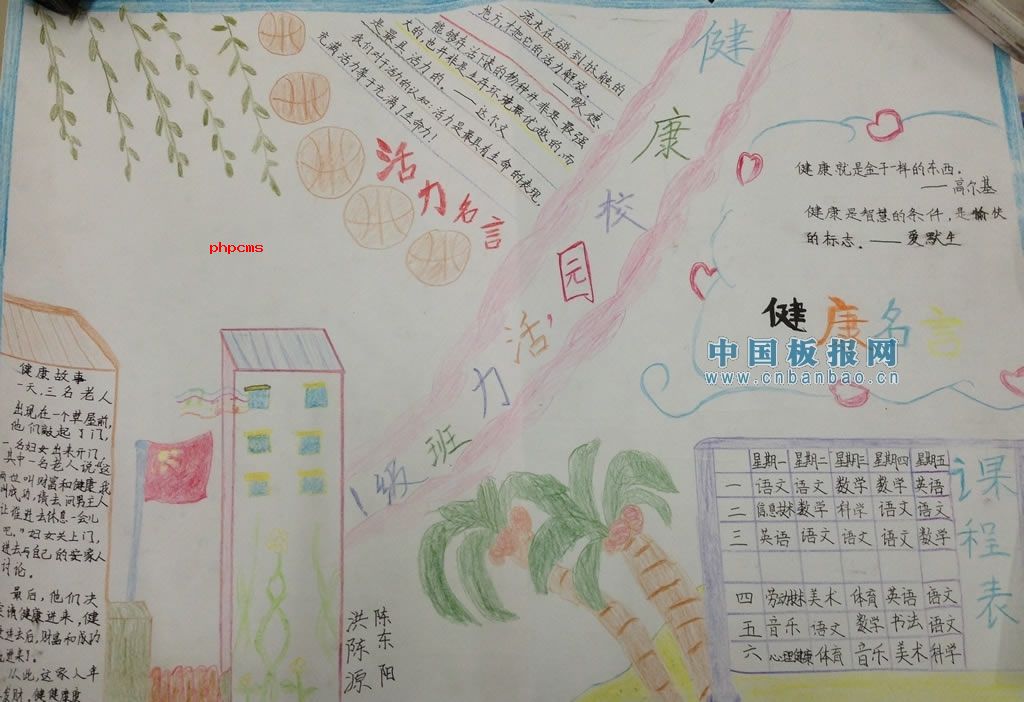 健康校园活力班级
流水在碰到抵触的
地方，才把它的活力解放。——歌德
能够存活下来的物种并不是最强
大的，也并非是生存环境最优越的，而
是最具活力的。——达尔文
我们对于活力的认知：活力是最具有生命的表现，
充满活力等于充满了生命力！
活力名言
phpcms
健康就是金子一样的东西.
——高尔基
健康是智慧的条件，是愉快
的标志.——爱默生
健康名言
中国板报网
www.cnbanbao.cn
健康故事
一天，三名老人
出现在一个草屋前，
他们敲起了门，
一名妇女出来开门，
其中一名老人说："这
两位叫财富和健康我
叫成功，请去问男主人
让谁进去休息一会儿
吧。"妇女关上门，
进去与自己的安家人
讨论。
最后，他们决
请健康进来，健
进去后，财富和成功
进来了。
从此，这家人年
发财，健健康康
陈东阳
洪陈源
课程表
星期一 星期二 星期三 星期四 星期五
一 语文 语文 数学 数学 英语
二 信息技术 数学 科学 语文 语文
三 英语 语文 语文 语文 数学
四 劳动技术 美术 体育 英语 语文
五 音乐 语文 数学 书法 语文
六 心理健康 体育 音乐 美术 科学